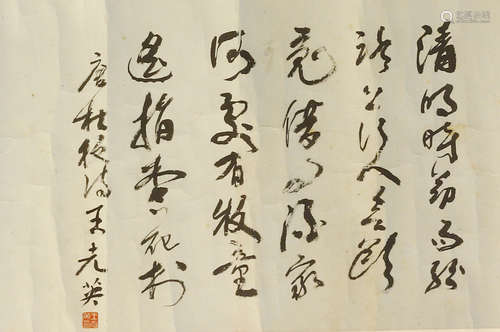 清明時節雨紛
路上行人欲斷
魂借問酒家
何處有牧童
遙指杏花村
唐杜牧詩 王光英